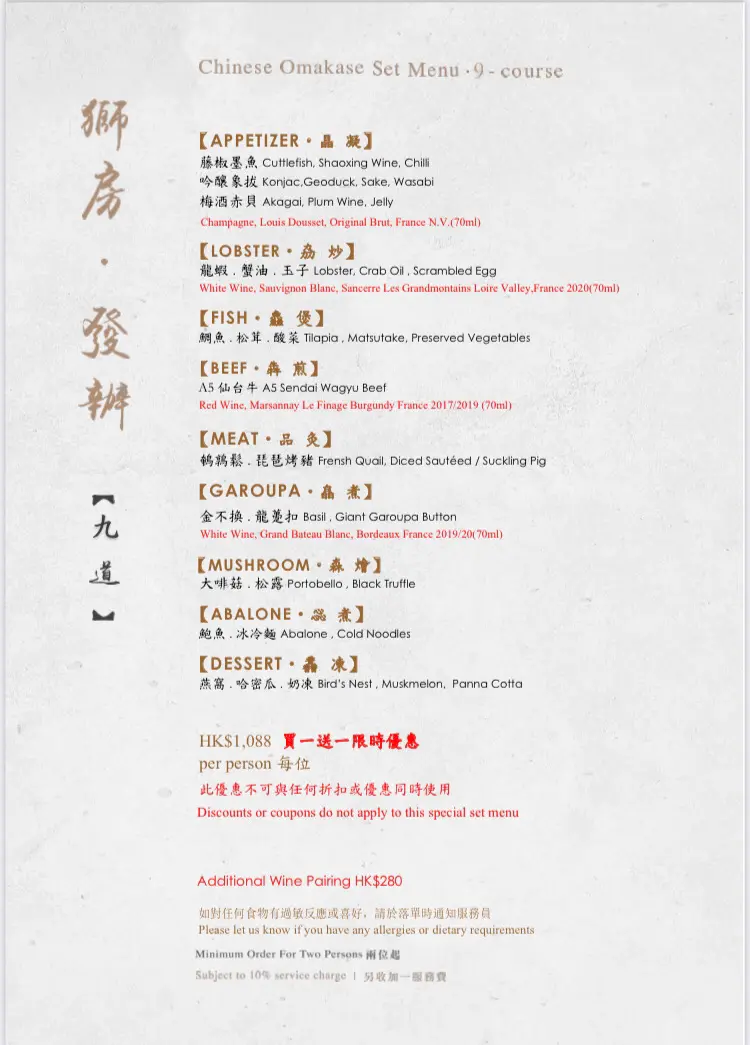 Chinese Omakase Set Menu · 9 - course
獅房·發辦
【九道】
【APPETIZER • 晶 凝】
藤椒墨魚 Cuttlefish, Shaoxing Wine, Chilli
吟釀象拔 Konjac,Geoduck, Sake, Wasabi
梅酒赤貝 Akagai, Plum Wine, Jelly
Champagne, Louis Dousset, Original Brut, France N.V.(70ml)
【LOBSTER • 劦 炒】
龍蝦 . 蟹油 . 玉子 Lobster, Crab Oil , Scrambled Egg
White Wine, Sauvignon Blanc, Sancerre Les Grandmontains Loire Valley,France 2020(70ml)
【FISH • 鱻 煲】
鯛魚 . 松茸 . 酸菜 Tilapia , Matsutake, Preserved Vegetables
【BEEF • 犇 煎】
A5 仙台牛 A5 Sendai Wagyu Beef
Red Wine, Marsannay Le Finage Burgundy France 2017/2019 (70ml)
【MEAT • 品 炙】
鵪鶉鬆 . 琵琶烤豬 Frensh Quail, Diced Sautéed / Suckling Pig
【GAROUPA • 煮】
金不換 . 龍躉扣 Basil , Giant Garoupa Button
White Wine, Grand Bateau Blanc, Bordeaux France 2019/20(70ml)
【MUSHROOM • 森 燴】
大啡菇 . 松露 Portobello , Black Truffle
【ABALONE • 惢 煮】
鮑魚 . 冰冷麵 Abalone , Cold Noodles
【DESSERT • 凍】
燕窩 . 哈密瓜 . 奶凍 Bird's Nest , Muskmelon, Panna Cotta
HK$1,088 買一送一限時優惠
per person 每位
此優惠不可與任何折扣或優惠同時使用
Discounts or coupons do not apply to this special set menu
Additional Wine Pairing HK$280
如對任何食物有過敏反應或喜好，請於落單時通知服務員
Please let us know if you have any allergies or dietary requirements
Minimum Order For Two Persons 兩位起
Subject to 10% service charge | 另收加一服務費